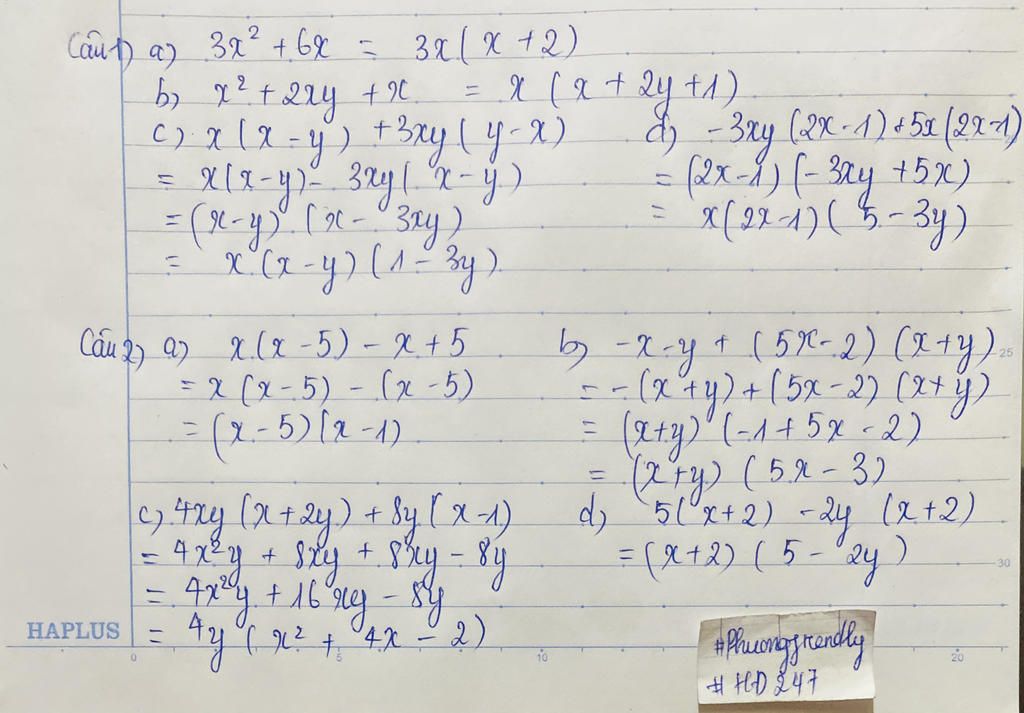 Câu 1) a) 3x² + 6x = 3x(x + 2)
b) x² + 2xy + x = x (x + 2y + 1)
c) x (x - y) + 3xy (y - x)
= x(x - y) - 3xy (x - y)
= (x - y) (x - 3xy)
= x (x - y) (1 - 3y)
d) - 3xy (2x - 1) + 5x (2x - 1)
= (2x - 1) (- 3xy + 5x)
= x(2x - 1) (5 - 3y)
Câu 2) a) x (x - 5) - x + 5
= x (x - 5) - (x - 5)
= (x - 5) (x - 1)
b) - x - y + (5x - 2) (x + y)
= - (x + y) + (5x - 2) (x + y)
= (x + y) (- 1 + 5x - 2)
= (x + y) (5x - 3)
c) 4xy (x + 2y) + 8y (x - 1)
= 4x²y + 8xy + 8xy - 8y
= 4x²y + 16xy - 8y
= 4y (x² + 4x - 2)
d) 5(x + 2) - 2y (x + 2)
= (x + 2) (5 - 2y)
25
30
HAPLUS
0 5 10 20
#Phuongfrendly
#HD247